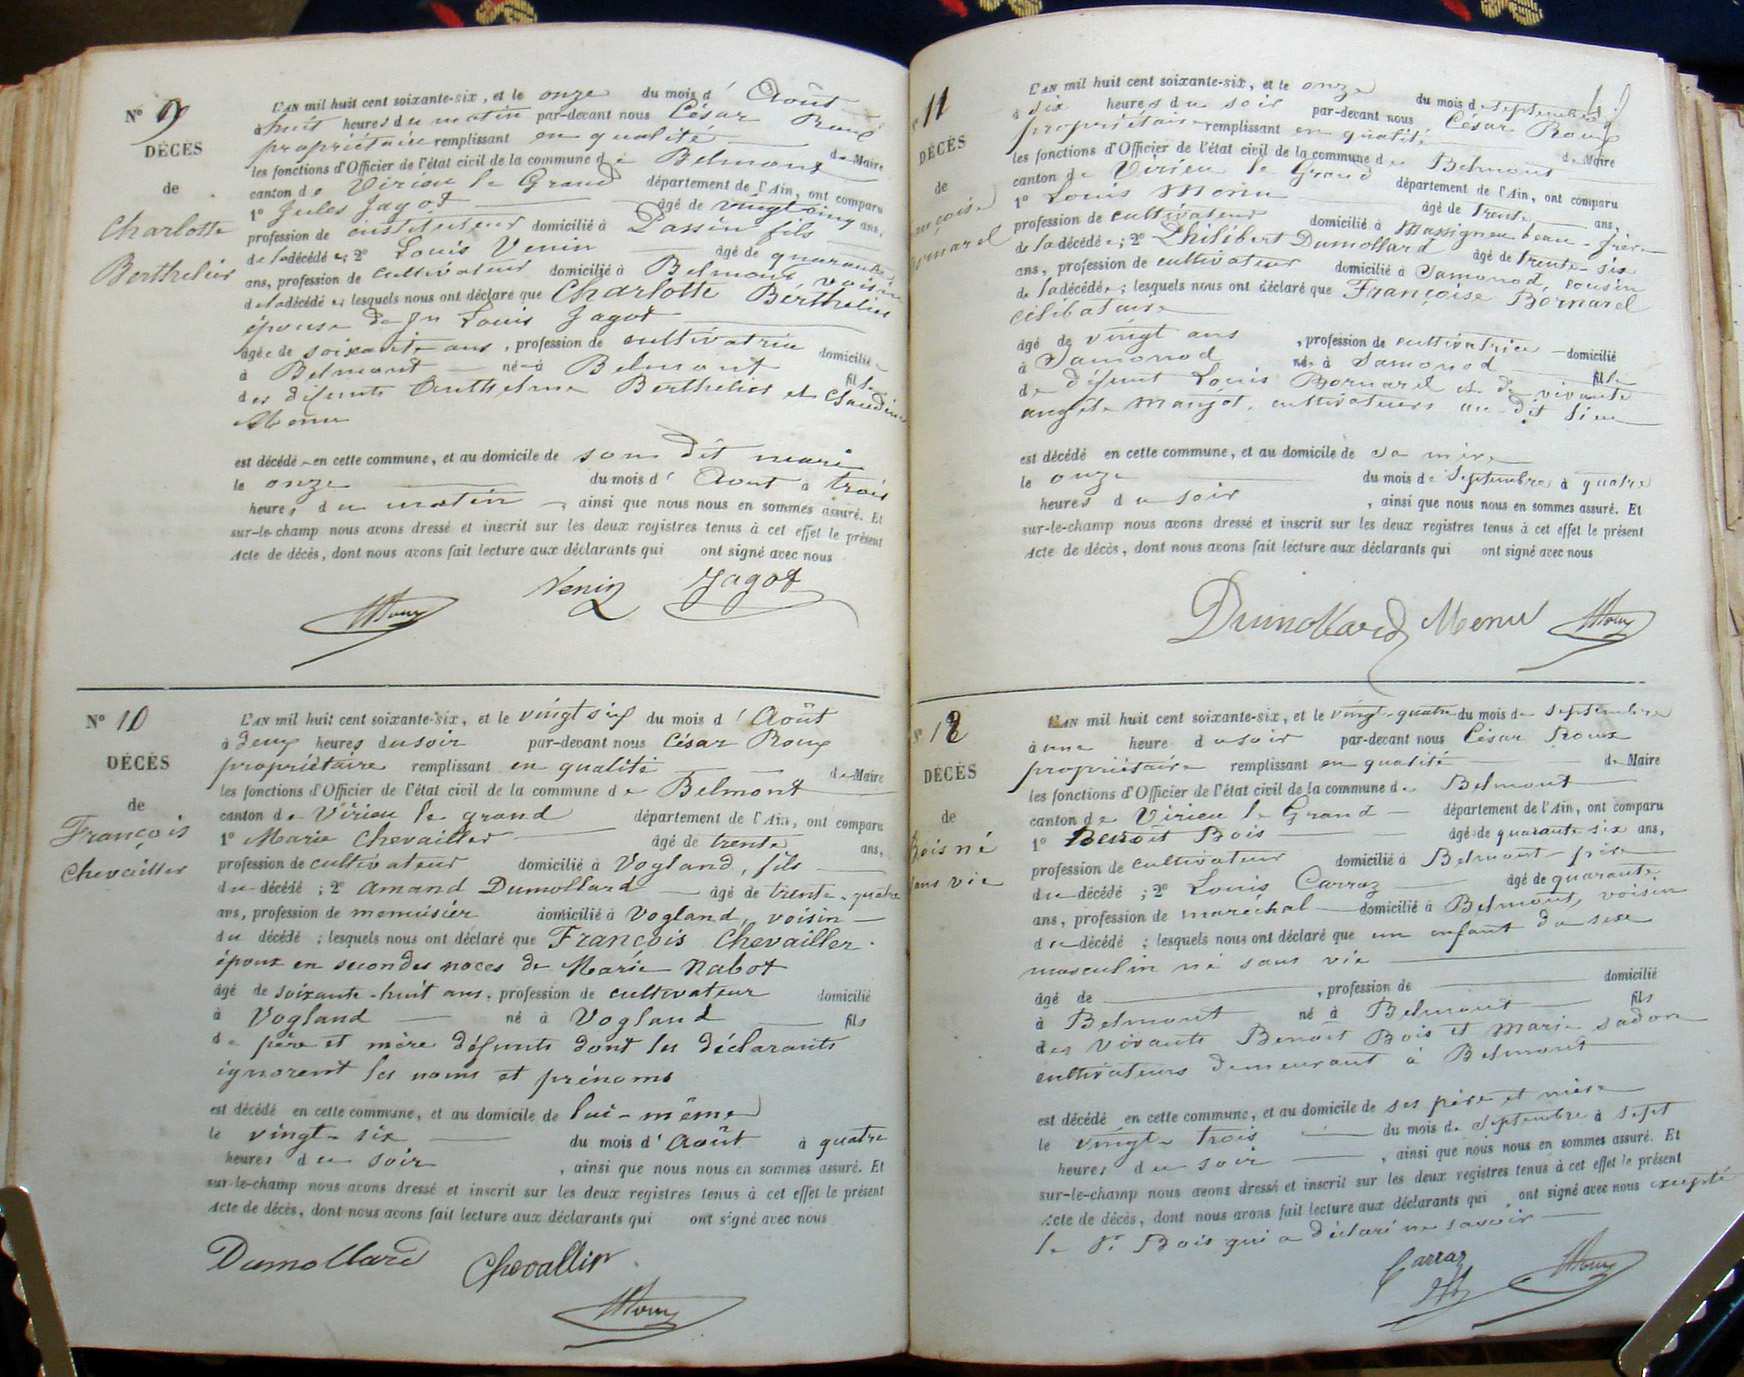 Nº 9
DÉCÈS
de
Charlotte
Berthelier
L'AN mil huit cent soixante-six, et le onze du mois d' Août
à huit heures du matin par-devant nous César Roux
propriétaire remplissant en qualité de Maire
les fonctions d'Officier de l'état civil de la commune de Belmont
canton de Virieu le Grand département de l'Ain, ont comparu
1º Jules Jagot âgé de vingt cinq ans,
profession de instituteur domicilié à Passin fils
de la décédée; 2º Louis Venin âgé de quarante
ans, profession de cultivateur domicilié à Belmont, voisin
de la décédée; lesquels nous ont déclaré que Charlotte Berthelier
épouse de feu Louis Jagot
âgée de soixante ans, profession de cultivatrice domiciliée
à Belmont née à Belmont fille
des défunts Anthelme Berthelier et Claudine
Menu
est décédée en cette commune, et au domicile de son dit mari
le onze du mois d' Aout à trois
heures du matin, ainsi que nous nous en sommes assuré. Et
sur-le-champ nous avons dressé et inscrit sur les deux registres tenus à cet effet le présent
Acte de décès, dont nous avons fait lecture aux déclarants qui ont signé avec nous
Venin Jagot
Roux
Nº 10
DÉCÈS
de
François
Chevailler
L'AN mil huit cent soixante-six, et le vingt six du mois d' Août
à deux heures du soir par-devant nous César Roux
propriétaire remplissant en qualité de Maire
les fonctions d'Officier de l'état civil de la commune de Belmont
canton de Virieu le grand département de l'Ain, ont comparu
1º Marie Chevailler âgé de trente ans,
profession de cultivateur domicilié à Vogland, fils
du décédé; 2º Amand Dumollard âgé de trente-quatre
ans, profession de menuisier domicilié à Vogland, voisin
du décédé; lesquels nous ont déclaré que François Chevailler
époux en secondes noces de Marie Nabot
âgé de soixante-huit ans, profession de cultivateur domicilié
à Vogland né à Vogland fils
de père et mère défunts dont les déclarants
ignorent les noms et prénoms
est décédé en cette commune, et au domicile de lui-même
le vingt-six du mois d' Août à quatre
heures du soir, ainsi que nous nous en sommes assuré. Et
sur-le-champ nous avons dressé et inscrit sur les deux registres tenus à cet effet le présent
Acte de décès, dont nous avons fait lecture aux déclarants qui ont signé avec nous
Dumollard Chevallier
Roux
11
DÉCÈS
de
L'AN mil huit cent soixante-six, et le onze du mois de septembre
à six heures du soir par-devant nous César Roux
propriétaire remplissant en qualité de Maire
les fonctions d'Officier de l'état civil de la commune de Belmont
canton de Virieu le Grand département de l'Ain, ont comparu
1º Louis Menu âgé de trente ans,
profession de cultivateur domicilié à Massignieu beau-frère
de la décédée; 2º Philibert Dumollard âgé de trente-six
ans, profession de cultivateur domicilié à Samonod, cousin
de la décédée; lesquels nous ont déclaré que Françoise Bornarel
célibataire
âgé de vingt ans, profession de cultivatrice domicilié
à Samonod née à Samonod fille
de défunt Louis Bornarel et de vivante
angèle Manjot, cultivateurs au dit lieu
est décédé en cette commune, et au domicile de sa mère
le onze du mois de Septembre à quatre
heures du soir, ainsi que nous nous en sommes assuré. Et
sur-le-champ nous avons dressé et inscrit sur les deux registres tenus à cet effet le présent
Acte de décès, dont nous avons fait lecture aux déclarants qui ont signé avec nous
Dumollard Menu Roux
12
DÉCÈS
de
Bois né
sans vie
L'AN mil huit cent soixante-six, et le vingt-quatre du mois de septembre
à une heure du soir par-devant nous César Roux
propriétaire remplissant en qualité de Maire
les fonctions d'Officier de l'état civil de la commune de Belmont
canton de Virieu le Grand département de l'Ain, ont comparu
1º Benoît Bois âgé de quarante six ans,
profession de cultivateur domicilié à Belmont père
du décédé; 2º Louis Carraz âgé de quarante
ans, profession de maréchal domicilié à Belmont, voisin
du décédé; lesquels nous ont déclaré que un enfant du sexe
masculin né sans vie
âgé de , profession de domicilié
à Belmont né à Belmont fils
des vivants Benoît Bois et Marie Sadon
cultivateurs demeurant à Belmont
est décédé en cette commune, et au domicile de ses père et mère
le vingt-trois du mois de septembre à sept
heures du soir, ainsi que nous nous en sommes assuré. Et
sur-le-champ nous avons dressé et inscrit sur les deux registres tenus à cet effet le présent
Acte de décès, dont nous avons fait lecture aux déclarants qui ont signé avec nous excepté
le Sr. Bois qui a déclaré ne savoir
Carraz Roux